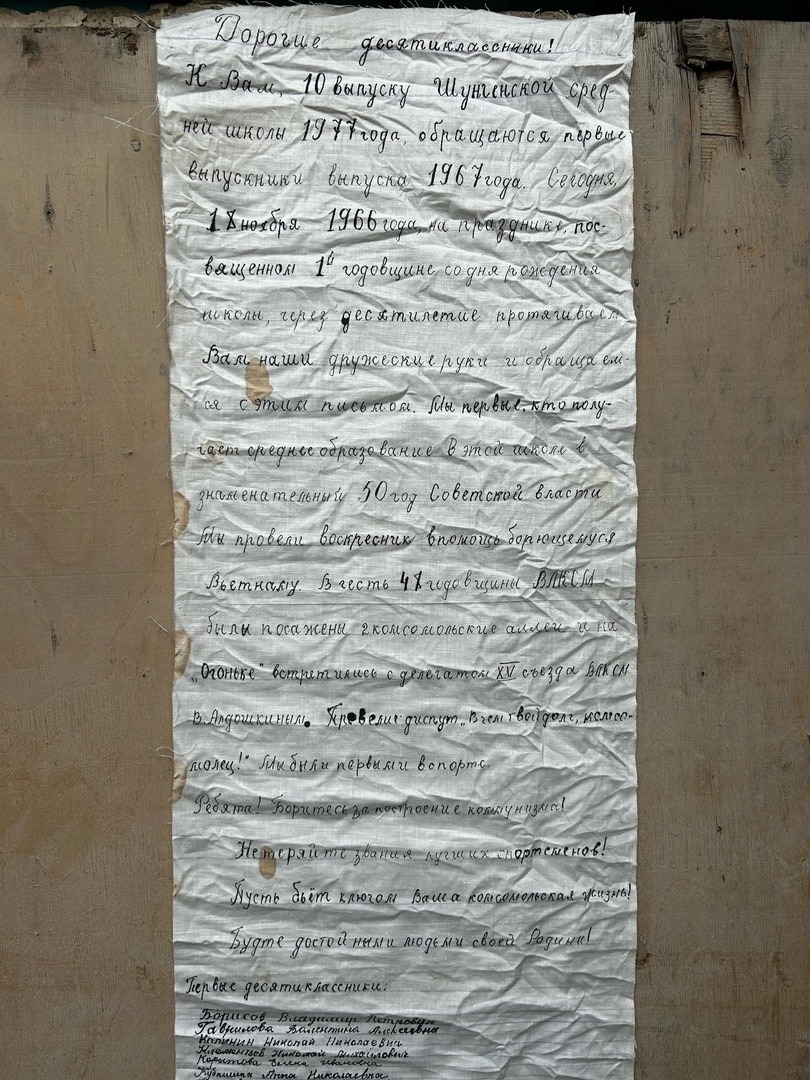 Дорогие десятиклассники!
К Вам, 10 выпуску Шунгенской сред-
ней школы 1977 года, обращаются первые
выпускники выпуска 1967 года. Сегодня,
18 ноября 1966 года, на празднике, пос-
вященном 1й годовщине со дня рождения
школы, через десятилетие протягиваем
Вам наши дружеские руки и обращаем-
ся с этим письмом. Мы первые, кто полу-
чает среднее образование в этой школе в
знаменательный 50 год Советской власти
Мы провели воскресник в помощь борющемуся
Вьетнаму. В честь 48 годовщины ВЛКСМ
были посажены 2 комсомольские аллеи и на
„Огоньке" встретились с делегатом XV съезда ВЛКСМ
В. Алдошкиным. Провели диспут „В чем твой долг, комсо-
молец!" Мы были первыми в спорте.
Ребята! Боритесь за построение коммунизма!
Не теряйте звания лучших спортсменов!
Пусть бьёт ключом Ваша комсомольская жизнь!
Будте достойными людьми своей Родины!
Первые десятиклассники:
Борисов Владимир Петрович
Гаврилова Валентина Алексеевна
Калинин Николай Николаевич
Клементьев Николай Михайлович
Корытова Елена Ивановна
Кубышина Анна Николаевна